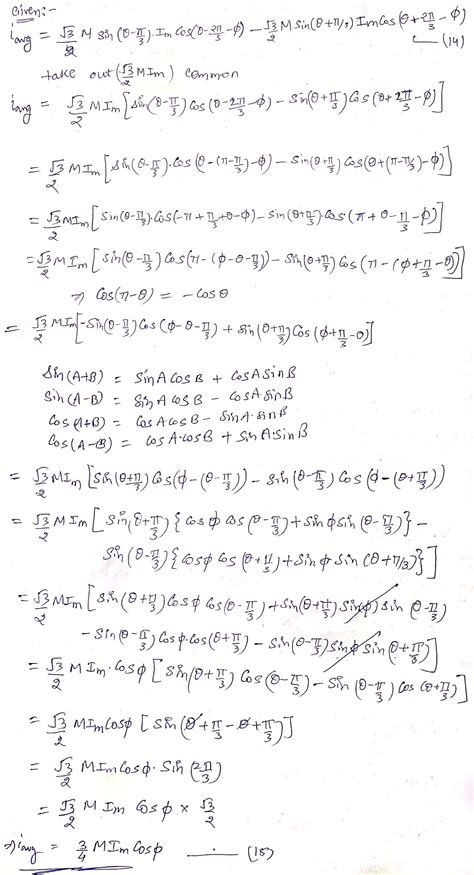 Given:-
i_avg = √3/2 M sin(θ-π/3).Im Cos(θ-2π/3-φ) - √3/2 M Sin(θ+π/3) Im Cos(θ+2π/3-φ)
(14)
take out (√3/2 M Im) common
i_avg = √3/2 M Im [Sin(θ-π/3) Cos(θ-2π/3-φ) - Sin(θ+π/3) Cos(θ+2π/3-φ)]
= √3/2 M Im [Sin(θ-π/3).Cos(θ-(π-π/3)-φ) - Sin(θ+π/3) Cos(θ+(π-π/3)-φ)]
= √3/2 M Im [Sin(θ-π/3).Cos(-π+π/3+θ-φ) - Sin(θ+π/3).Cos(π+θ-π/3-φ)]
= √3/2 M Im [Sin(θ-π/3) Cos(π-(φ-θ-π/3)) - Sin(θ+π/3) Cos(π-(φ+π/3-θ))]
⇒ Cos(π-θ) = -Cosθ
= √3/2 M Im [-Sin(θ-π/3) Cos(φ-θ-π/3) + Sin(θ+π/3) Cos(φ+π/3-θ)]
Sin(A+B) = SinA CosB + CosA SinB
Sin(A-B) = SinA CosB - CosA SinB
Cos(A+B) = CosA CosB - SinA.SinB
Cos(A-B) = CosA.CosB + SinA.SinB
= √3/2 M Im [Sin(θ+π/3) Cos(φ-(θ-π/3)) - Sin(θ-π/3) Cos(φ-(θ+π/3))
= √3/2 M Im [Sin(θ+π/3) {Cosφ Cos(θ-π/3) + Sinφ Sin(θ-π/3)} -
Sin(θ-π/3) {Cosφ Cos(θ+π/3) + Sinφ Sin(θ+π/3)}]
= √3/2 M Im [Sin(θ+π/3) Cosφ Cos(θ-π/3) + Sin(θ+π/3) Sinφ Sin(θ-π/3)
- Sin(θ-π/3) Cosφ.Cos(θ+π/3) - Sin(θ-π/3) Sinφ Sin(θ+π/3)]
= √3/2 M Im.Cosφ [Sin(θ+π/3) Cos(θ-π/3) - Sin(θ-π/3) Cos(θ+π/3)]
= √3/2 M Im Cosφ [Sin(θ+π/3-θ+π/3)]
= √3/2 M Im Cosφ. Sin(2π/3)
= √3/2 M Im Cosφ × √3/2
⇒ i_avg = 3/4 M Im Cosφ (15)